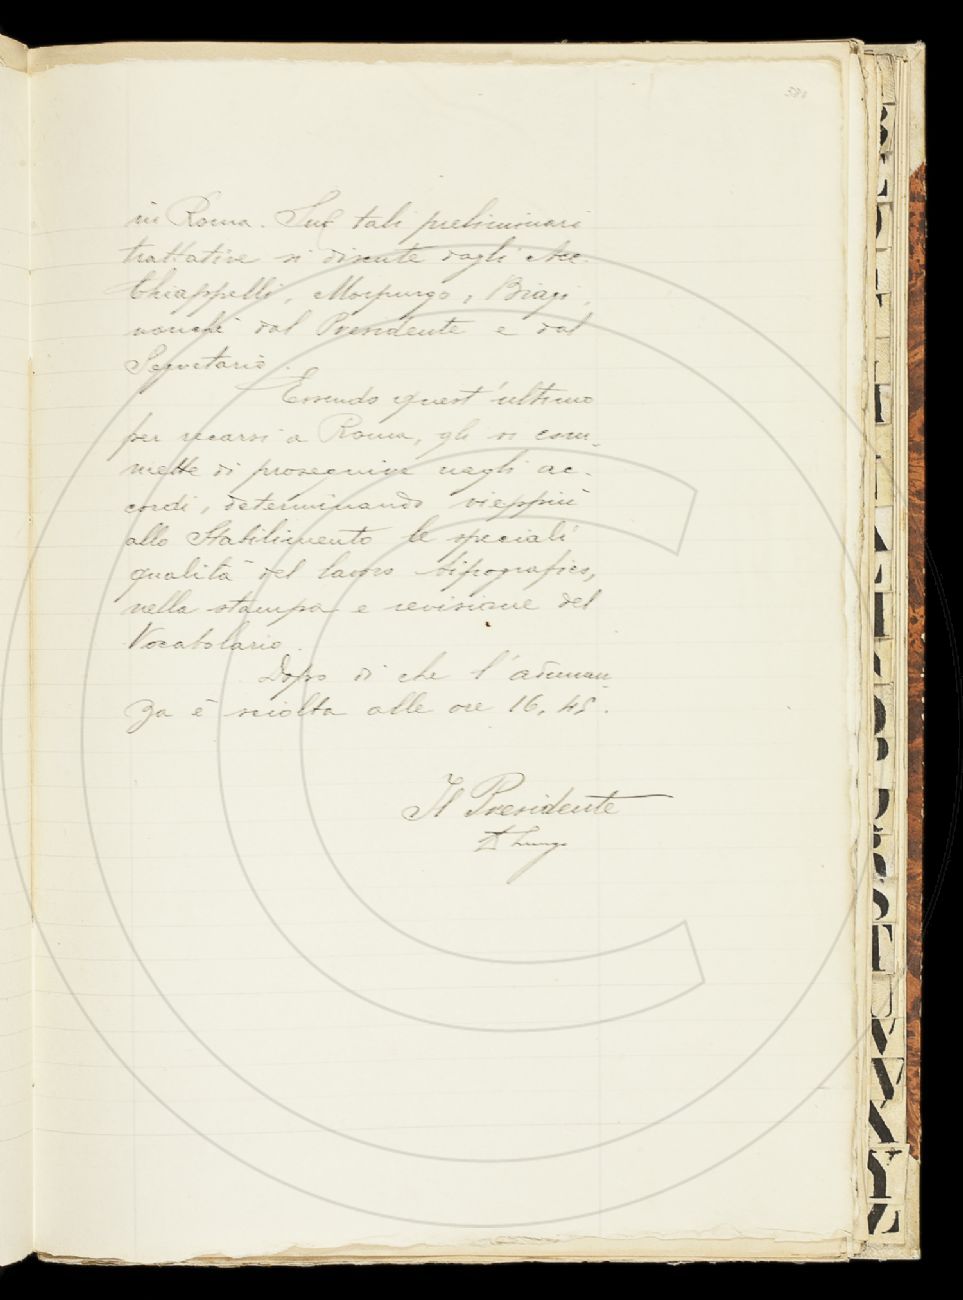 in Roma. Sul tali preliminari
trattative si discute dagli Acc.
Chiappelli, Morpurgo, Biagi,
nonchè dal Presidente e dal
Segretario.
Essendo quest'ultimo
per recarsi a Roma, gli si com-
mette di proseguire negli ac-
cordi, determinando vieppiù
allo Stabilimento le speciali
qualità del lavoro tipografico,
nella stampa e revisione del
Vocabolario.
Dopo di che l'adunan-
za è sciolta alle ore 16,45.
Il Presidente